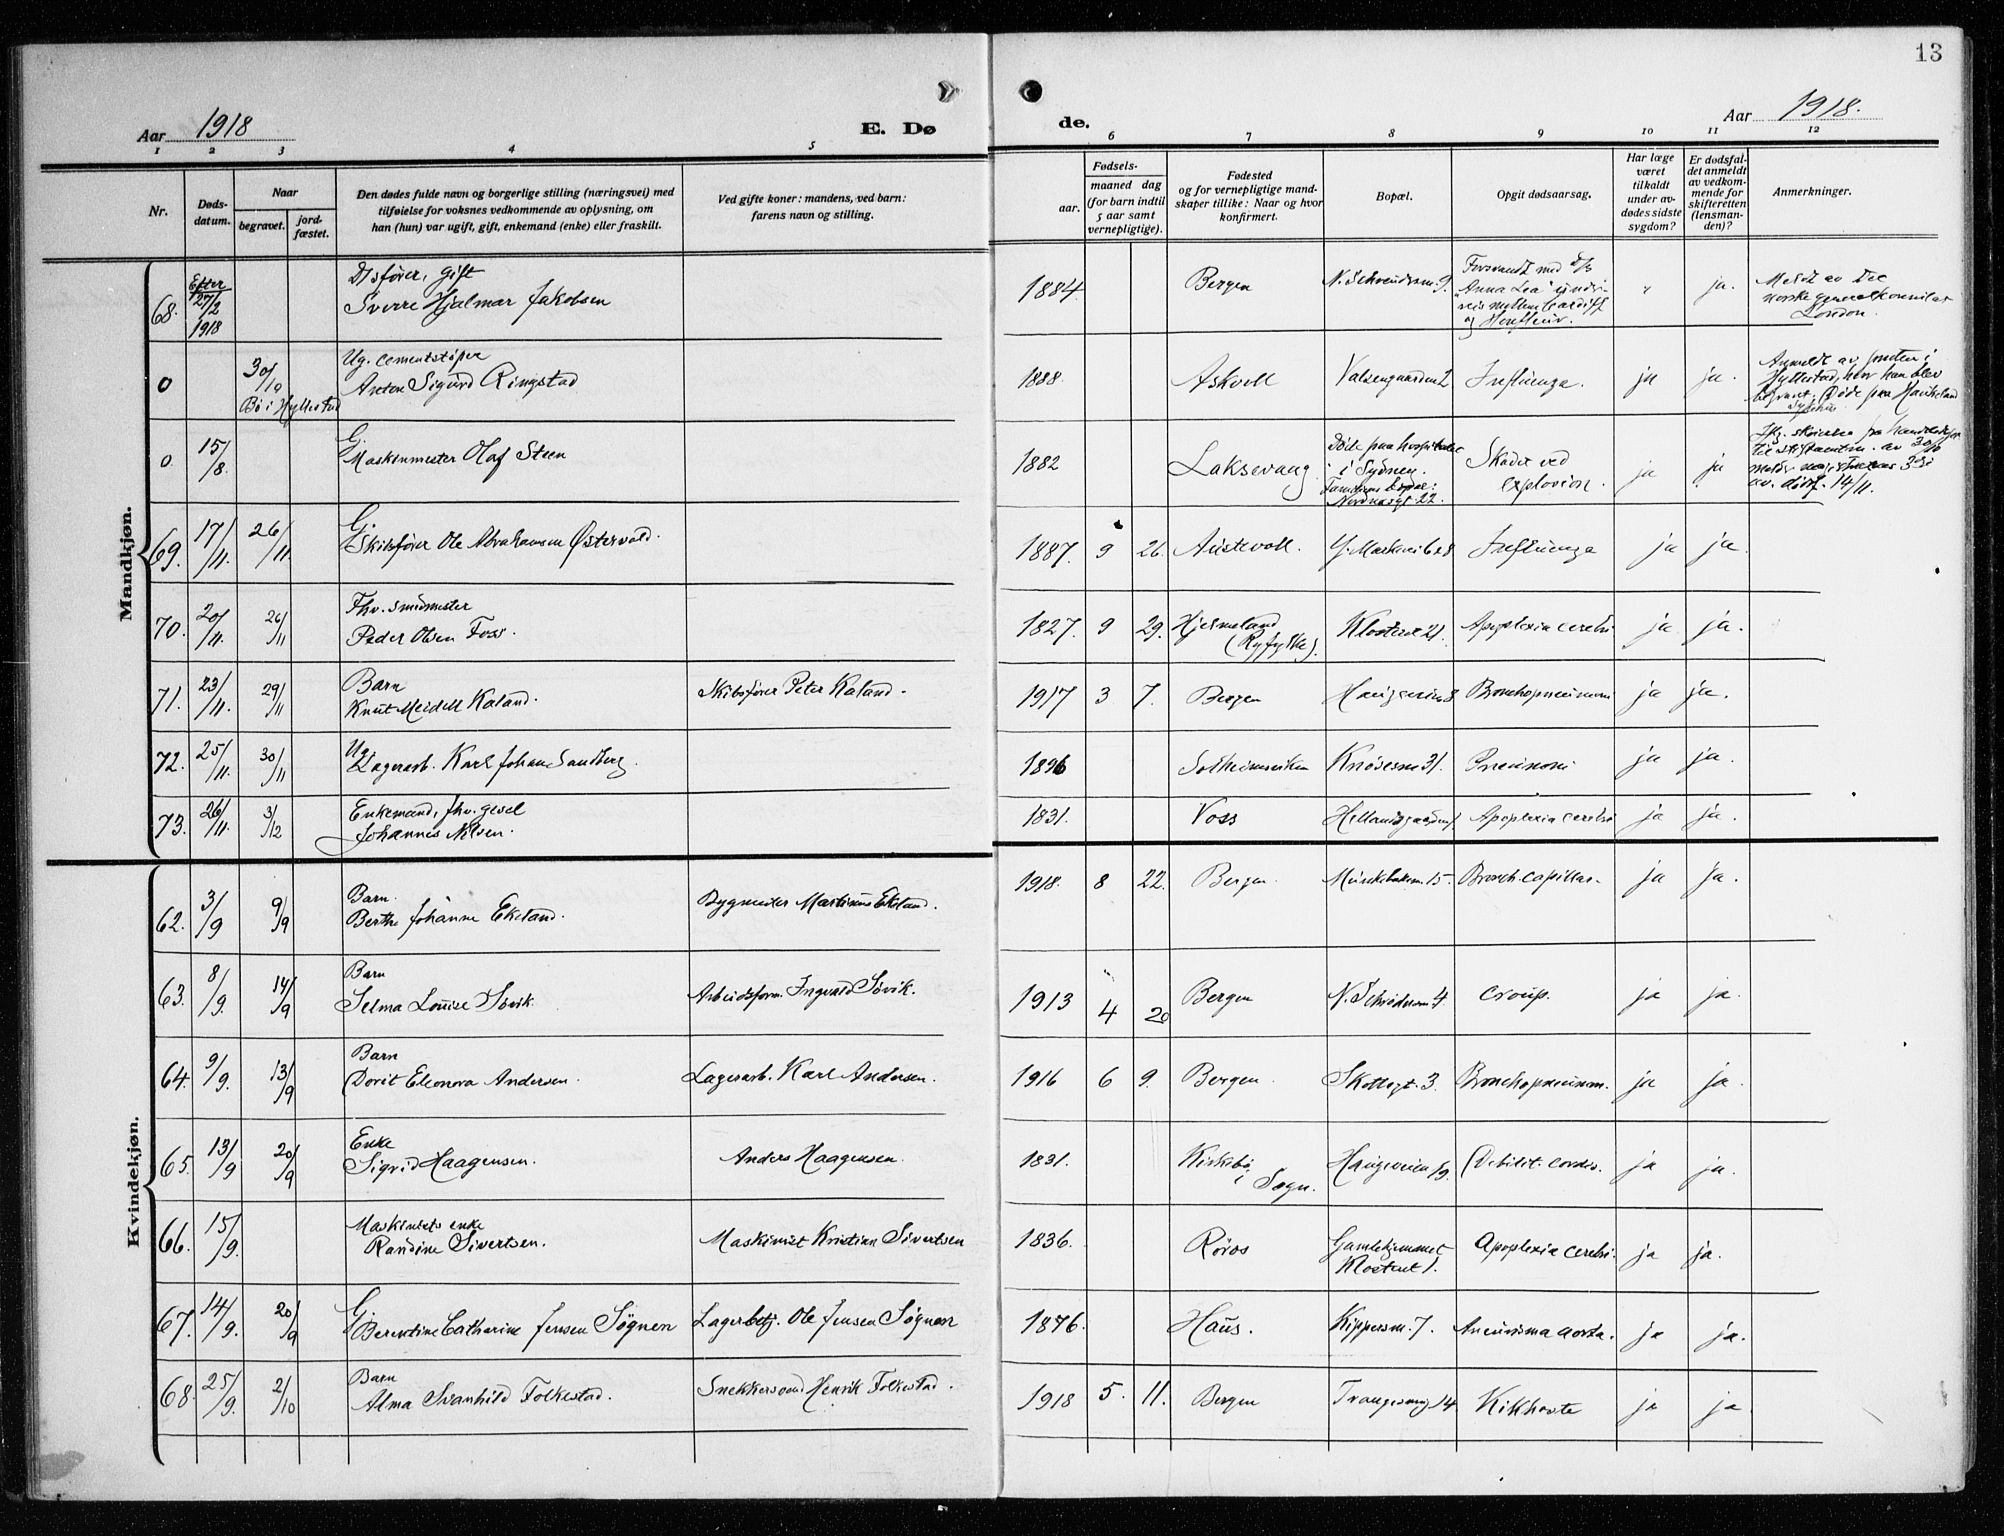 13
Aar 1918
E. Dø
de.
Aar 1918.
1 2 3 4 5 6 7 8 9 10 11 12
Nr.
Døds-
datum.
Naar
begravet.
jord-
fæstet.
Den dødes fulde navn og borgerlige stilling (næringsvei) med
tilføielse for voksnes vedkommende av oplysning, om
han (hun) var ugift, gift, enkemand (enke) eller fraskilt.
Ved gifte koner: mandens, ved barn:
farens navn og stilling.
Fødsels-
aar.
maaned dag
(for barn indtil
5 aar samt
vernepligtige).
Fødested
og for vernepligtige mand-
skaper tillike: Naar og hvor
konfirmert.
Bopæl.
Opgit dødsaarsag.
Har læge
været
tilkaldt
under av-
dødes sidste
sygdom?
Er dødsfal-
det anmeldt
av vedkom-
mende for
skifteretten
(lensman-
den)?
Anmerkninger.
Mandkjøn.
68. Efter 27/2 1918
fører, gift
Sverre Hjalmar Jakobsen
1884. Bergen 9.
Forsvandt med d/s
"Anna Lea"
mellem Cardiff
og Honfleur.
" ja.
Meldt av det
norske generalkonsulat
London.
0 30/10 Bø i Hyllestad
Ug. cementstøper
Anton Sigurd Ringstad
1888. Askvoll Influenza. ja ja.
Anmeldt av
Hyllestad, hvor han blev
begravet. Døde paa Haukeland
sykehus
0. 15/8
G.
Maskinmester Olaf Steen
1882 Laksevaag
Døde paa hospitalet
i Sydney.
22.
Skadet ved
explosion. ja ja
14/11.
69. 17/11. 26/11
G.
Skibsfører Ole Abrahamsen Østervold.
1887. 9 26. Austevoll. Influenza ja ja.
70. 20/11. 26/11
Fhv. smedmester
Peder Olsen Foss.
1827. 9 29. Hjelmeland
(Ryfylke). Klosteret 21. Apoplexia cerebri ja ja.
71. 23/11. 29/11
Barn
Knut Meidell Kaland.
Skibsfører Peter Kaland.
1917 3 7. Bergen Haugeveien 8 Bronchopneumoni ja ja.
72. 25/11. 30/11
Ug.
Lagerarb. Karl Johan Sandberg.
1896 Solheimsviken Knøsesm 31. Pneumoni ja ja.
73. 26/11. 3/12
Enkemand, fhv. gesel
Johannes Nilsen.
1831. Voss Apoplexia cerebri ja ja.
Kvindekjøn.
62. 3/9 9/9
Barn.
Berthe Johanne Ekeland.
Bygmester Martinus Ekeland.
1918. 8 22. Bergen. 15. Bronch. capillar. ja ja.
63. 8/9. 14/9
Barn
Selma Louise Søvik.
Arbeidsform. Ingvald Søvik.
1913 4 20 Bergen 4. Croup. ja ja.
64. 9/9. 13/9
Barn
Dorit Eleonora Andersen.
Lagerarb. Karl Andersen.
1916 6 9. Bergen Skottegt. 3. Bronchopneumm. ja ja.
65. 13/9 20/9
Enke
Sigrid Haagensen.
Anders Haagensen.
1831. Kirkebø
i Sogn. Haugeveien 19. Debilit. cordis. ja ja.
66. 15/9.
Maskinists enke
Randine Sivertsen.
Maskinist Kristian Sivertsen
1836. Røros
Gamlehjemmet
Klosteret 1. Apoplexia cerebri. ja ja.
67. 14/9. 20/9
G.
Berentine Catharine Jensen Søgnen
Lagerbetj. Ole Jensen Søgnen
1876. Haus. Kippersm. 7. Aneurisma aorta. ja ja.
68. 25/9. 2/10
Barn
Alma Svanhild Folkestad.
Snekkersvend Henrik Folkestad.
1918 5. 11. Bergen 14 Kikhoste ja ja